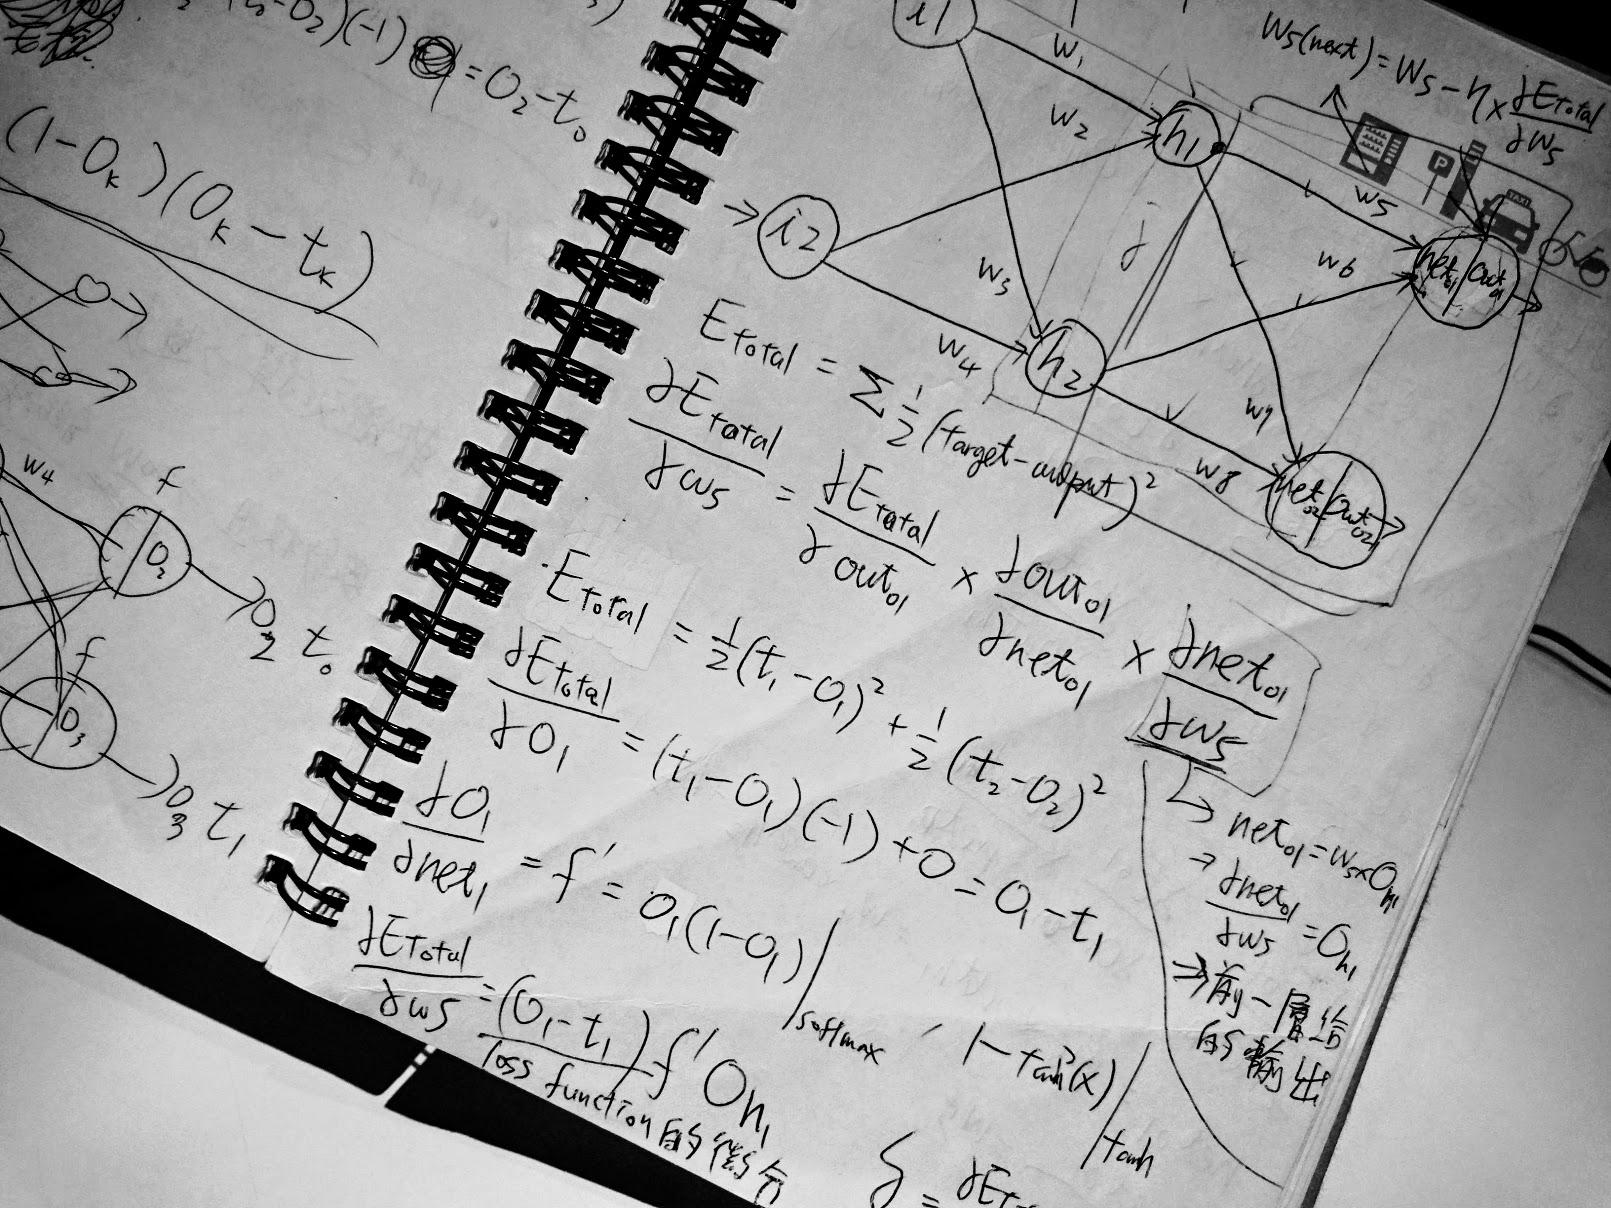 -O₂)(-1) = O₂-t₀
(1-Oₖ)(Oₖ-tₖ)
W₄
f
O₂
O₂ t₀
f
O₃
O₃ t₁
i1
W₁
W₂
h₁
W₅(next) = W₅ - η × ∂E_Total/∂W₅
P
TAXI
i2
W₃
j
W₅
W₆
net₀₁ / out₀₁
W₄
h₂
W₇
W₈
net₀₂ / out₀₂
E_Total = Σ ½(target-output)²
∂E_Total/∂W₅ = ∂E_Total/∂out₀₁ × ∂out₀₁/∂net₀₁ × ∂net₀₁/∂W₅
E_Total = ½(t₁-O₁)² + ½(t₂-O₂)²
∂E_Total/∂O₁ = (t₁-O₁)(-1)+0 = O₁-t₁
∂O₁/∂net₁ = f' = O₁(1-O₁) | softmax , 1-tanh²(x) | tanh
∂E_Total/∂W₅ = (O₁-t₁) f' Oₕ₁
loss function的微分
→ net₀₁ = W₅×Oₕ₁
→ ∂net₀₁/∂W₅ = Oₕ₁
→ 前一層給
的輸出
δ = ∂E_T